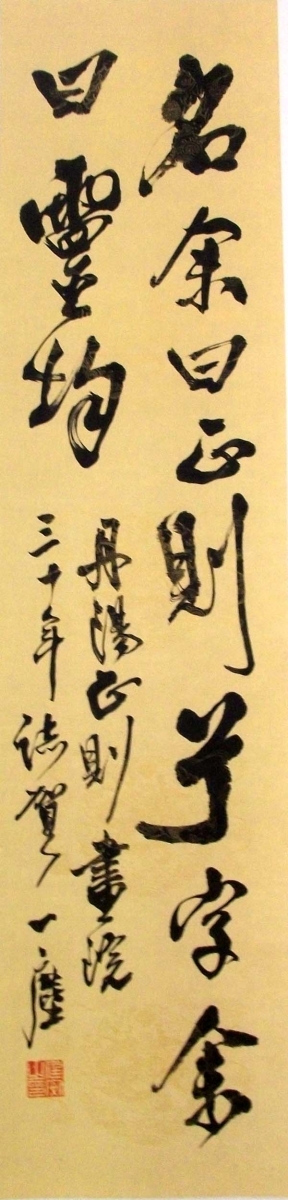 名余曰正則兮字余
曰靈均
丹陽正則畫院
三十年誌賀 一塵